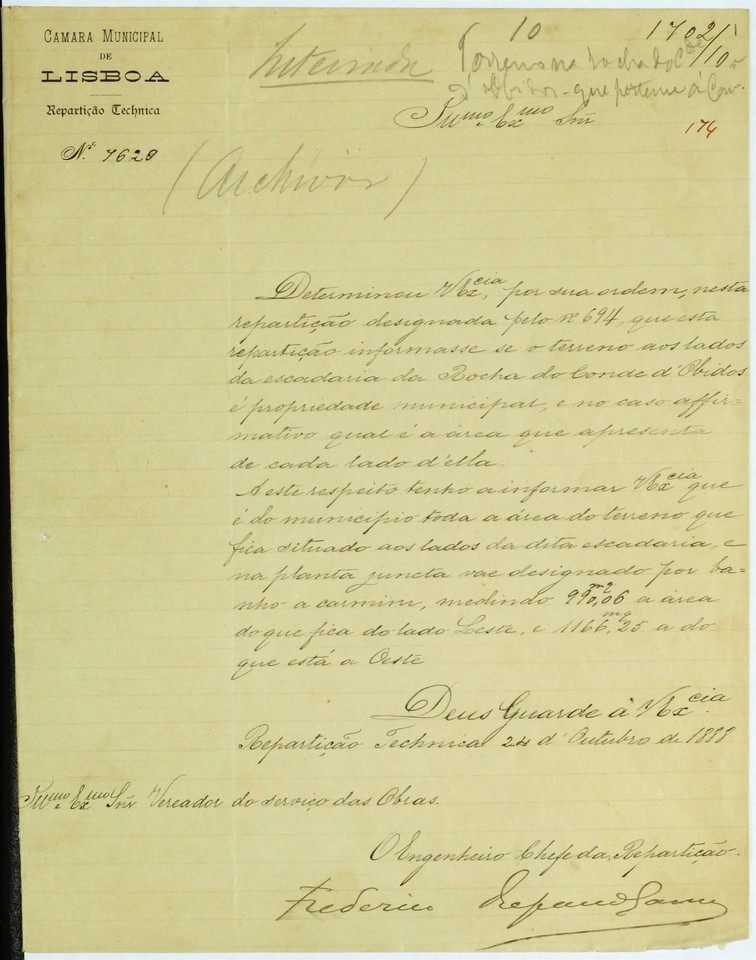 CAMARA MUNICIPAL
DE
LISBOA
Repartição Technica
Nº 7629
10 1702/1
Inteirado
Terreno na rocha do Cde /10
d'Obidos - que pertence á Cam.
Illmo e Exmo Snr
174
(Archivar)
Determinou V Excia, por sua ordem, nesta
repartição designada pelo nº 694, que esta
repartição informasse se o terreno aos lados
da escadaria da Rocha do Conde d'Obidos
é propriedade municipal, e no caso affir-
mativo qual é a área que apresenta
de cada lado d'ella.
A este respeito tenho a informar V Excia que
é do municipio toda a área do terreno que
fica situado aos lados da dita escadaria, e
na planta juncta vae designado por ba-
nho a carmim, medindo 990,06 m2 a área
do que fica do lado Leste, e 1166,25 m2 a do
que está a Oeste
Deus Guarde a V Excia
Repartição Technica 24 d'Outubro de 1888
Illmo e Exmo Snr Vereador do serviço das Obras.
O Engenheiro Chefe da Repartição.
Frederico Ressano Garcia